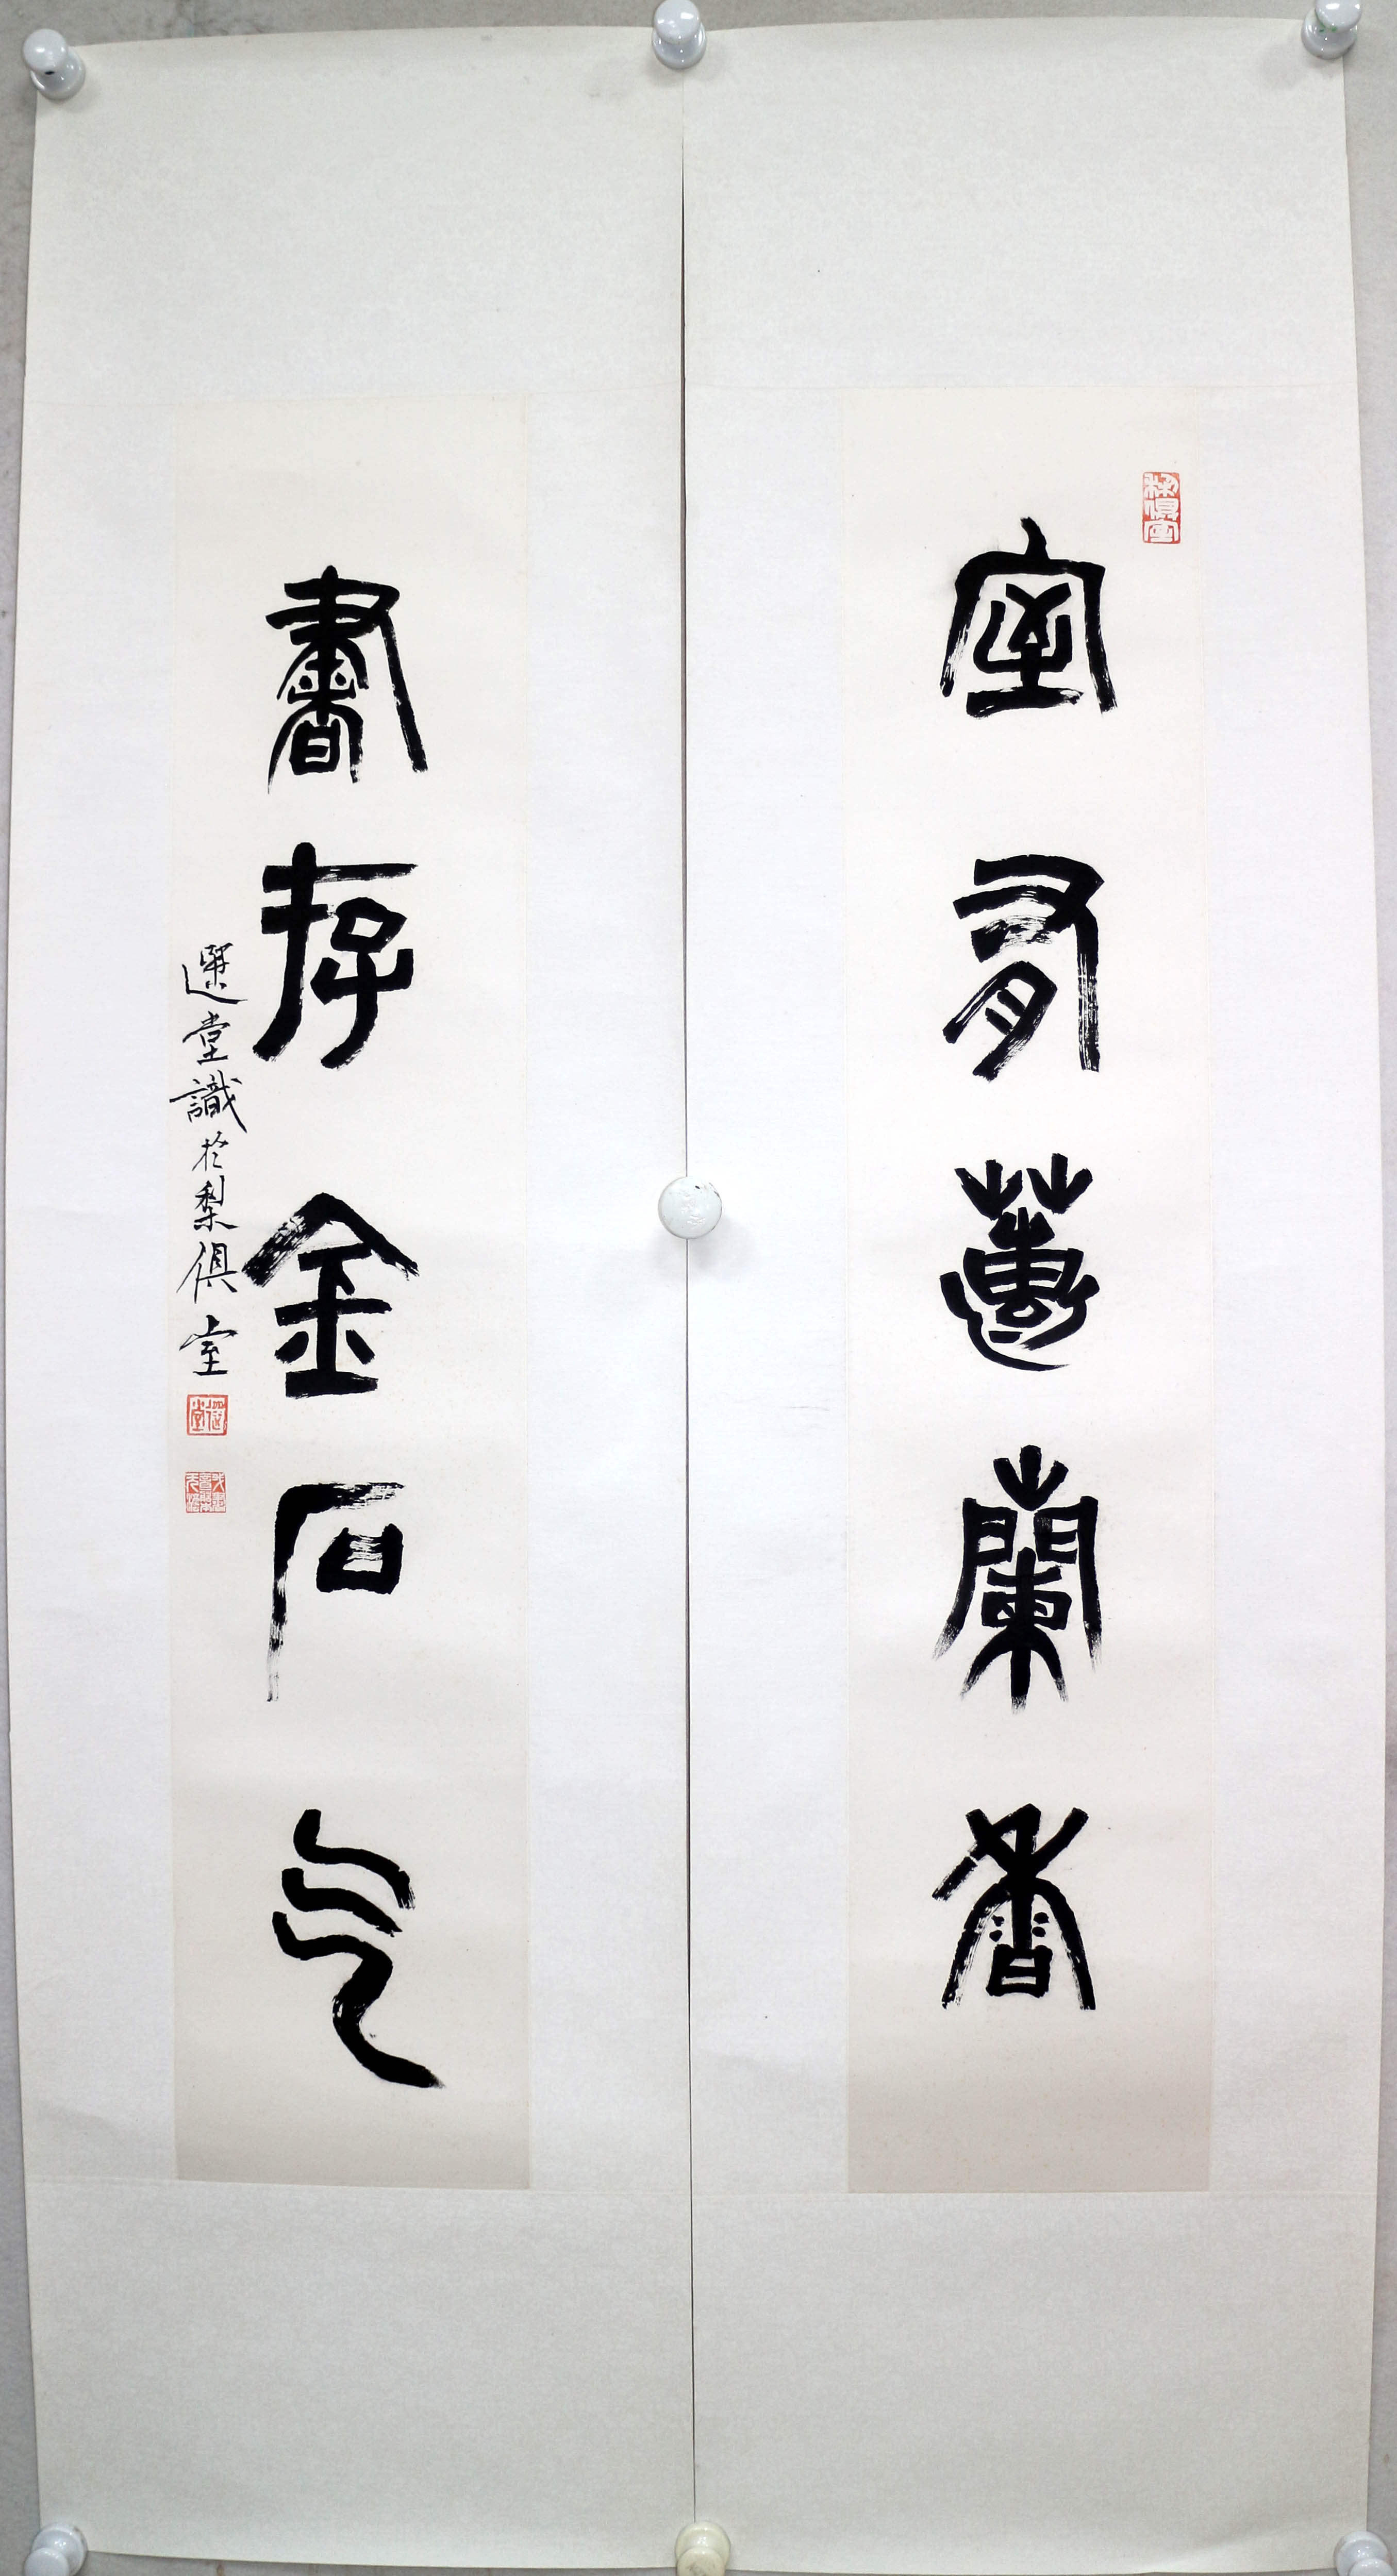 梨俱室
室有蕙蘭香
書存金石气
選堂識於梨俱室